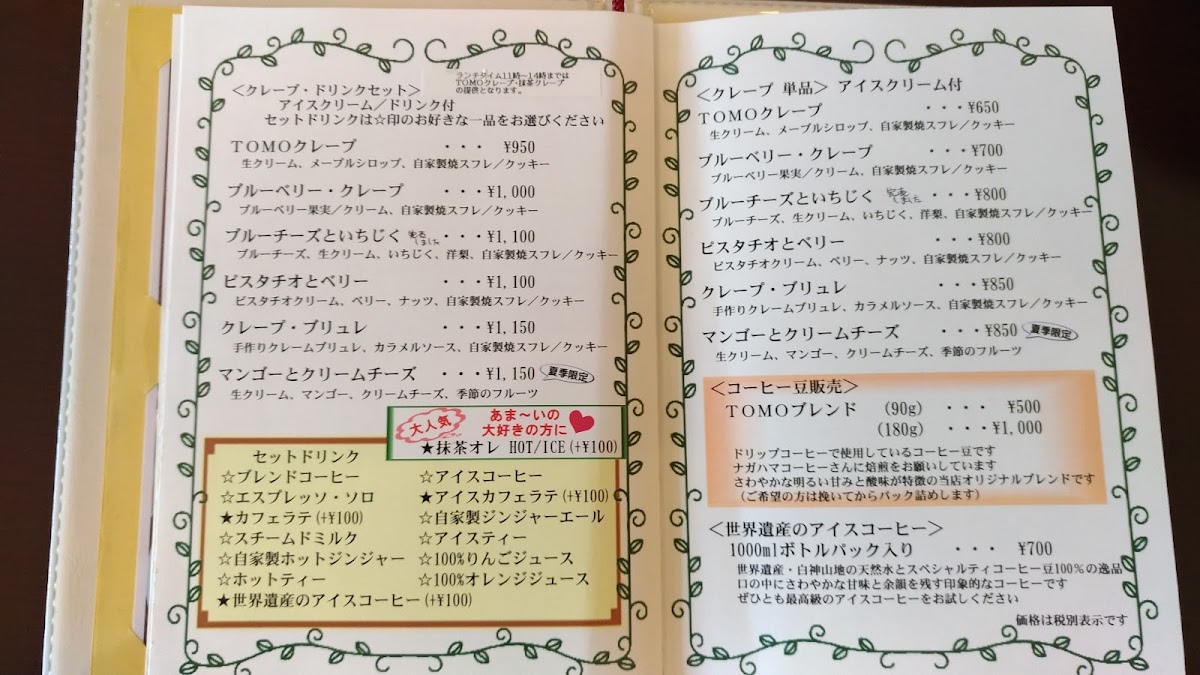 ランチタイム11時～14時までは
TOMOクレープ・抹茶クレープ
の提供となります。
＜クレープ・ドリンクセット＞
アイスクリーム／ドリンク付
セットドリンクは☆印のお好きな一品をお選びください
TOMOクレープ ・・・ ¥950
生クリーム、メープルシロップ、自家製焼スフレ／クッキー
ブルーベリー・クレープ ・・・¥1,000
ブルーベリー果実／クリーム、自家製焼スフレ／クッキー
ブルーチーズといちじく 完売しました ・・・¥1,100
ブルーチーズ、生クリーム、いちじく、洋梨、自家製焼スフレ／クッキー
ピスタチオとベリー ・・・¥1,100
ピスタチオクリーム、ベリー、ナッツ、自家製焼スフレ／クッキー
クレープ・ブリュレ ・・・¥1,150
手作りクレームブリュレ、カラメルソース、自家製焼スフレ／クッキー
マンゴーとクリームチーズ ・・・¥1,150 夏季限定
生クリーム、マンゴー、クリームチーズ、季節のフルーツ
大人気
あま～いの
大好きの方に
★抹茶オレ HOT/ICE(+¥100)
セットドリンク
☆ブレンドコーヒー ☆アイスコーヒー
☆エスプレッソ・ソロ ★アイスカフェラテ(+¥100)
★カフェラテ(+¥100) ☆自家製ジンジャーエール
☆スチームドミルク ☆アイスティー
☆自家製ホットジンジャー ☆100%りんごジュース
☆ホットティー ☆100%オレンジジュース
★世界遺産のアイスコーヒー(+¥100)
＜クレープ 単品＞ アイスクリーム付
TOMOクレープ ・・・¥650
生クリーム、メープルシロップ、自家製焼スフレ／クッキー
ブルーベリー・クレープ ・・・¥700
ブルーベリー果実／クリーム、自家製焼スフレ／クッキー
ブルーチーズといちじく 完売しました ・・・¥800
ブルーチーズ、生クリーム、いちじく、洋梨、自家製焼スフレ／クッキー
ピスタチオとベリー ・・・¥800
ピスタチオクリーム、ベリー、ナッツ、自家製焼スフレ／クッキー
クレープ・ブリュレ ・・・¥850
手作りクレームブリュレ、カラメルソース、自家製焼スフレ／クッキー
マンゴーとクリームチーズ ・・・¥850 夏季限定
生クリーム、マンゴー、クリームチーズ、季節のフルーツ
＜コーヒー豆販売＞
TOMOブレンド (90g) ・・・ ¥500
(180g) ・・・ ¥1,000
ドリップコーヒーで使用しているコーヒー豆です
ナガハマコーヒーさんに焙煎をお願いしています
さわやかな明るい甘みと酸味が特徴の当店オリジナルブレンドです
（ご希望の方は挽いてからパック詰めします）
＜世界遺産のアイスコーヒー＞
1000mlボトルパック入り ・・・ ¥700
世界遺産・白神山地の天然水とスペシャルティコーヒー豆100％の逸品
口の中にさわやかな甘味と余韻を残す印象的なコーヒーです
ぜひとも最高級のアイスコーヒーをお試しください
価格は税別表示です